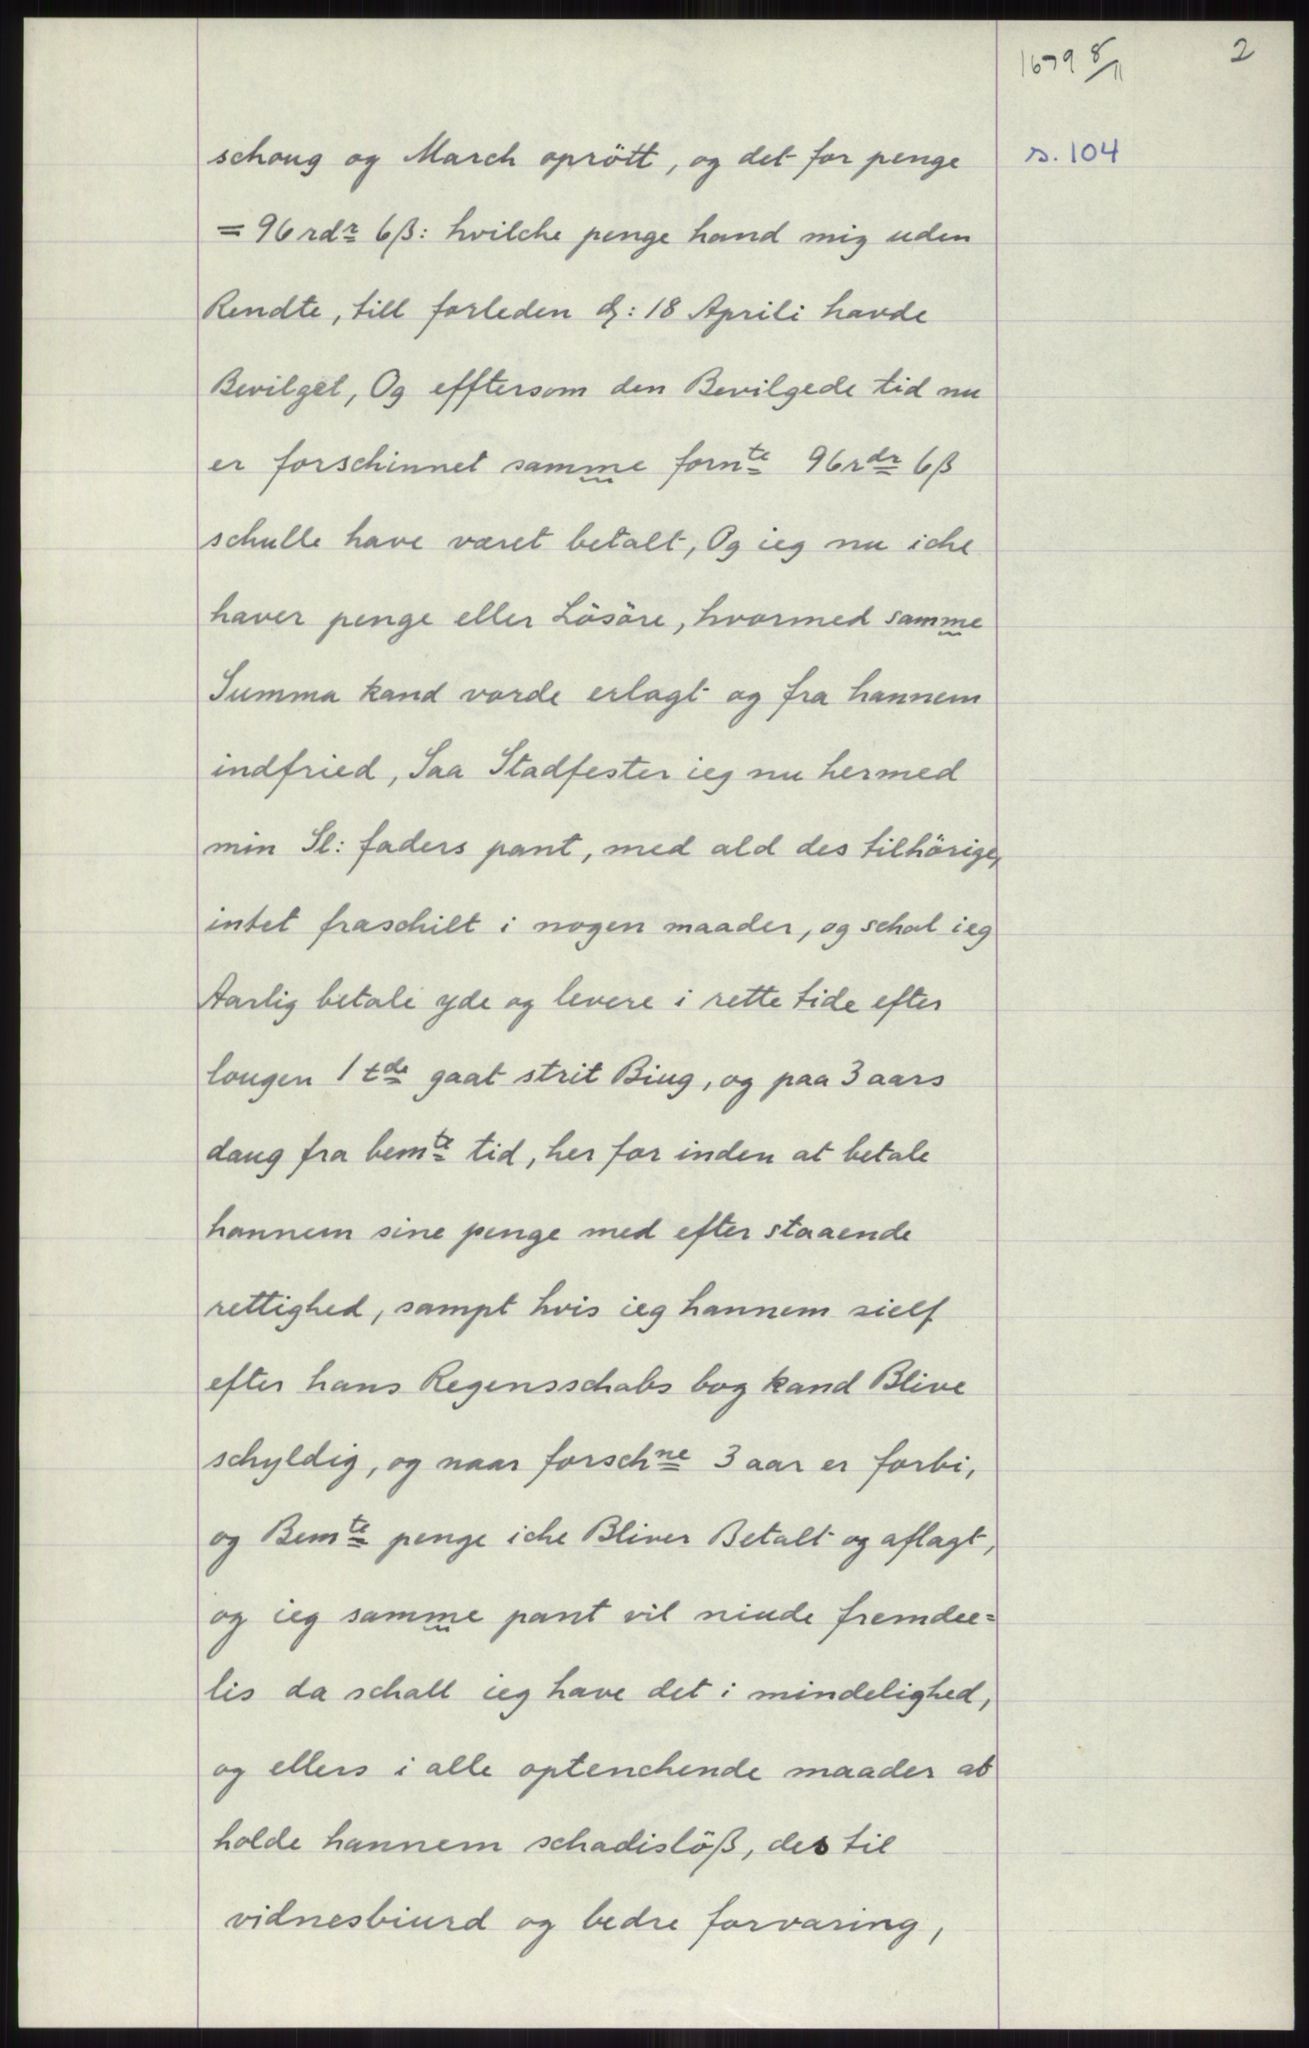 1679 8/11
2
s. 104
schoug og March oprött, og det for penge
= 96 rdr 6ß: hvilche penge hand mig uden
Rendte, till forleden d: 18 Aprili havde
Bevilget, Og efftersom den Bevilgede tid nu
er forschinnet samme fornte 96 rdr 6ß
schulle have været betalt, Og ieg nu iche
haver penge eller Lösöre, hvormed samme
Summa kand vorde erlagt og fra hannem
indfried, Saa Stadfester ieg nu hermed
min Sl: faders pant, med ald des tilhörige,
intet fraschilt i nogen maader, og schal ieg
Aarlig betale yde og levere i rette tide efter
lougen 1 tde gaat strit Biug, og paa 3 aars
daug fra bemte tid, her for inden at betale
hannem sine penge med efter staaende
rettighed, sampt hvis ieg hannem sielf
efter hans Regensschabs bog kand Blive
schyldig, og naar forschne 3 aar er forbi,
og Bemte penge iche Bliver Betalt og aflagt,
og ieg samme pant vil niude fremdee=
lis da schall ieg have det i mindelighed,
og ellers i alle optenchende maader at
holde hannem schadislöß, des til
vidnesbiurd og bedre forvaring,